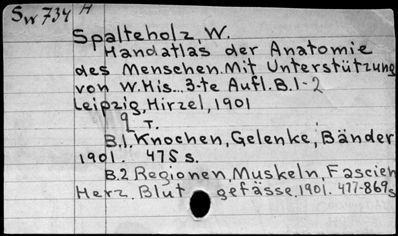 Sw 734 H
Spalteholz, W.
Handatlas der Anatomie
des Menschen. Mit Unterstützung
von W. His... 3-te Aufl. B. 1-2
Leipzig, Hirzel, 1901
2 т.
B.1. Knochen, Gelenke, Bänder
1901. 475 s.
B.2 Regionen, Muskeln, Fascien
Herz. Blut gefässe. 1901. 477-869s